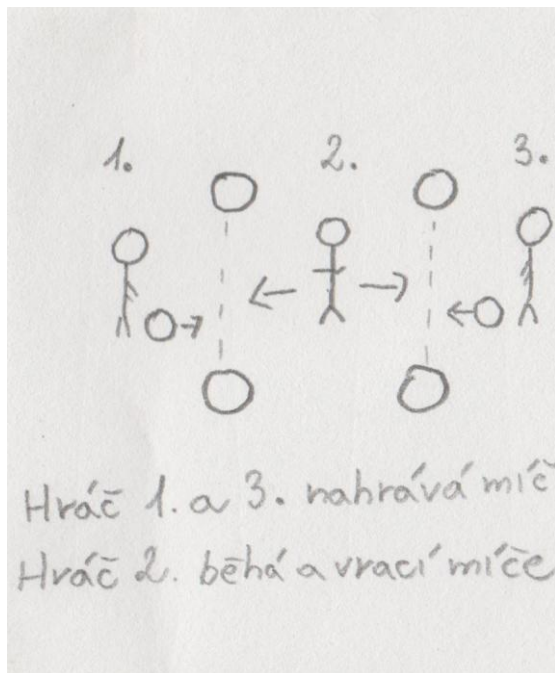 1. 2. 3.
Hráč 1. a 3. nahrává míč
Hráč 2. běhá a vrací míče